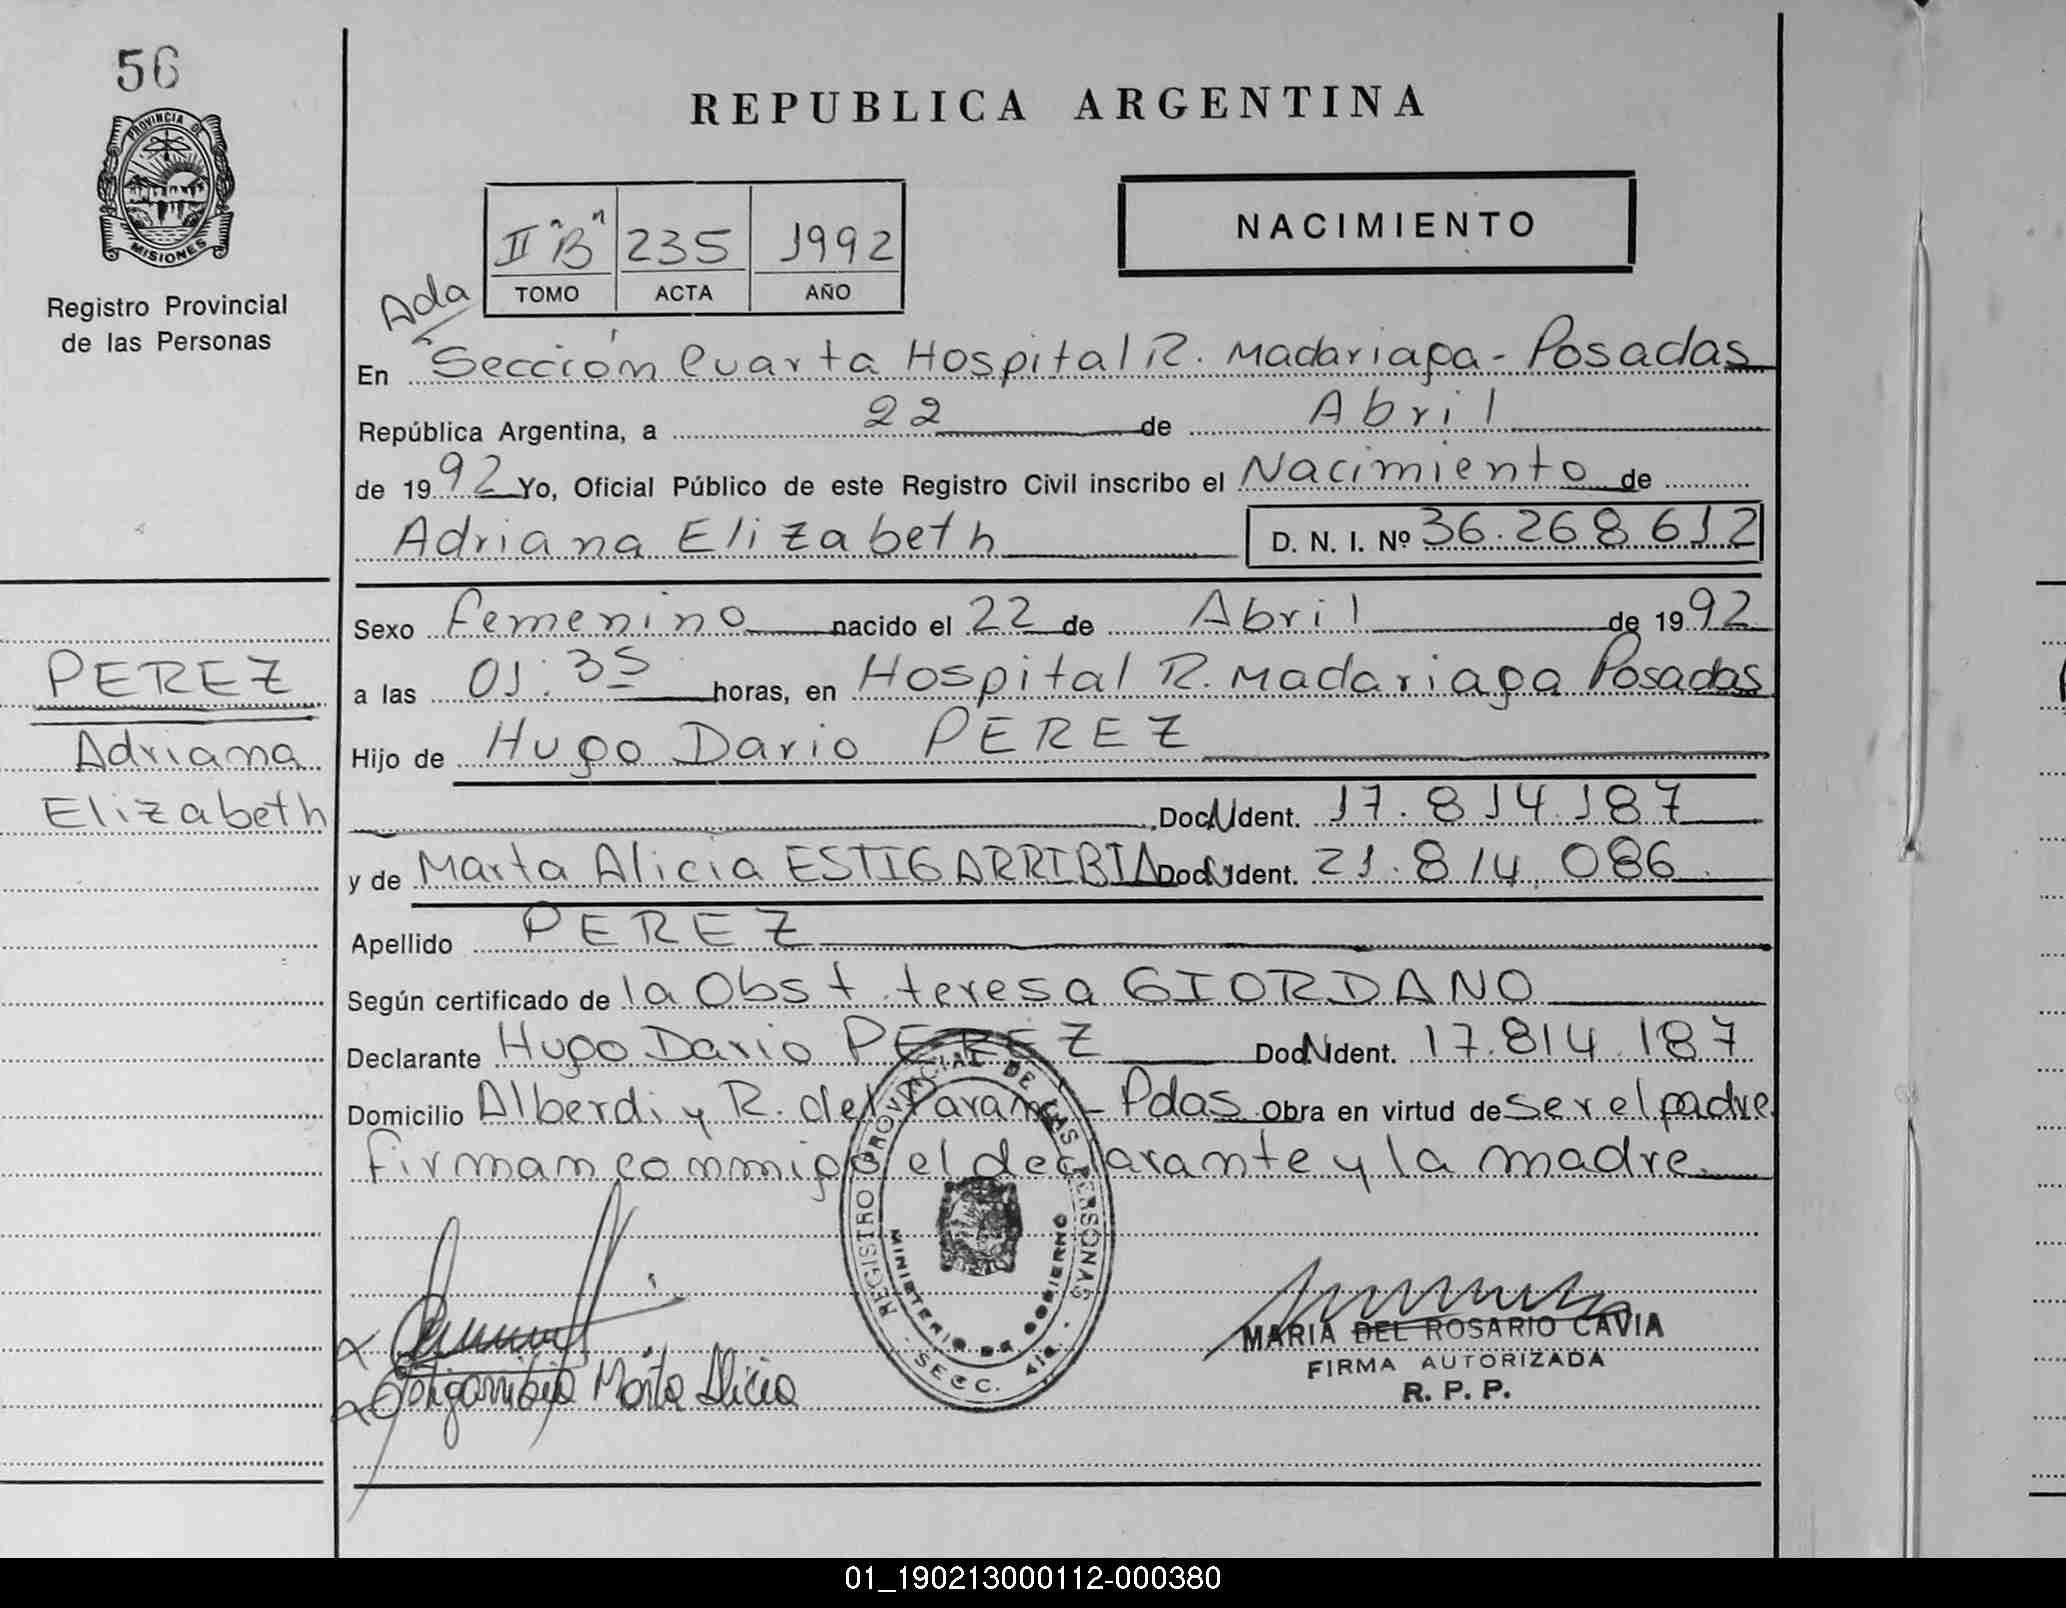 56
PROVINCIA DE
MISIONES
Registro Provincial
de las Personas
REPUBLICA ARGENTINA
II "B" 235 1992
TOMO ACTA AÑO
NACIMIENTO
Ada
En Sección Cuarta Hospital R. Madariaga - Posadas
República Argentina, a 22 de Abril
de 1992 Yo, Oficial Público de este Registro Civil inscribo el Nacimiento de
Adriana Elizabeth D. N. I. Nº 36.268.612
Sexo Femenino nacido el 22 de Abril de 1992
a las 01:35 horas, en Hospital R. Madariaga Posadas
Hijo de Hugo Dario PEREZ
Doc. Ident. 17.814.187
y de Marta Alicia ESTIGARRIBIA Doc. Ident. 21.814.086
Apellido PEREZ
Según certificado de la Obst. teresa GIORDANO
Declarante Hugo Dario PEREZ Doc. Ident. 17.814.187
Domicilio Alberdi y R. del Paraná - Pdas Obra en virtud de ser el padre.
firman conmigo el declarante y la madre.
PEREZ
Adriana
Elizabeth
REGISTRO PROVINCIAL DE LAS PERSONAS
MINISTERIO DE GOBIERNO
SECC. 4ta.
Estigarribia Marta Alicia
MARIA DEL ROSARIO CAVIA
FIRMA AUTORIZADA
R. P. P.
01_190213000112-000380